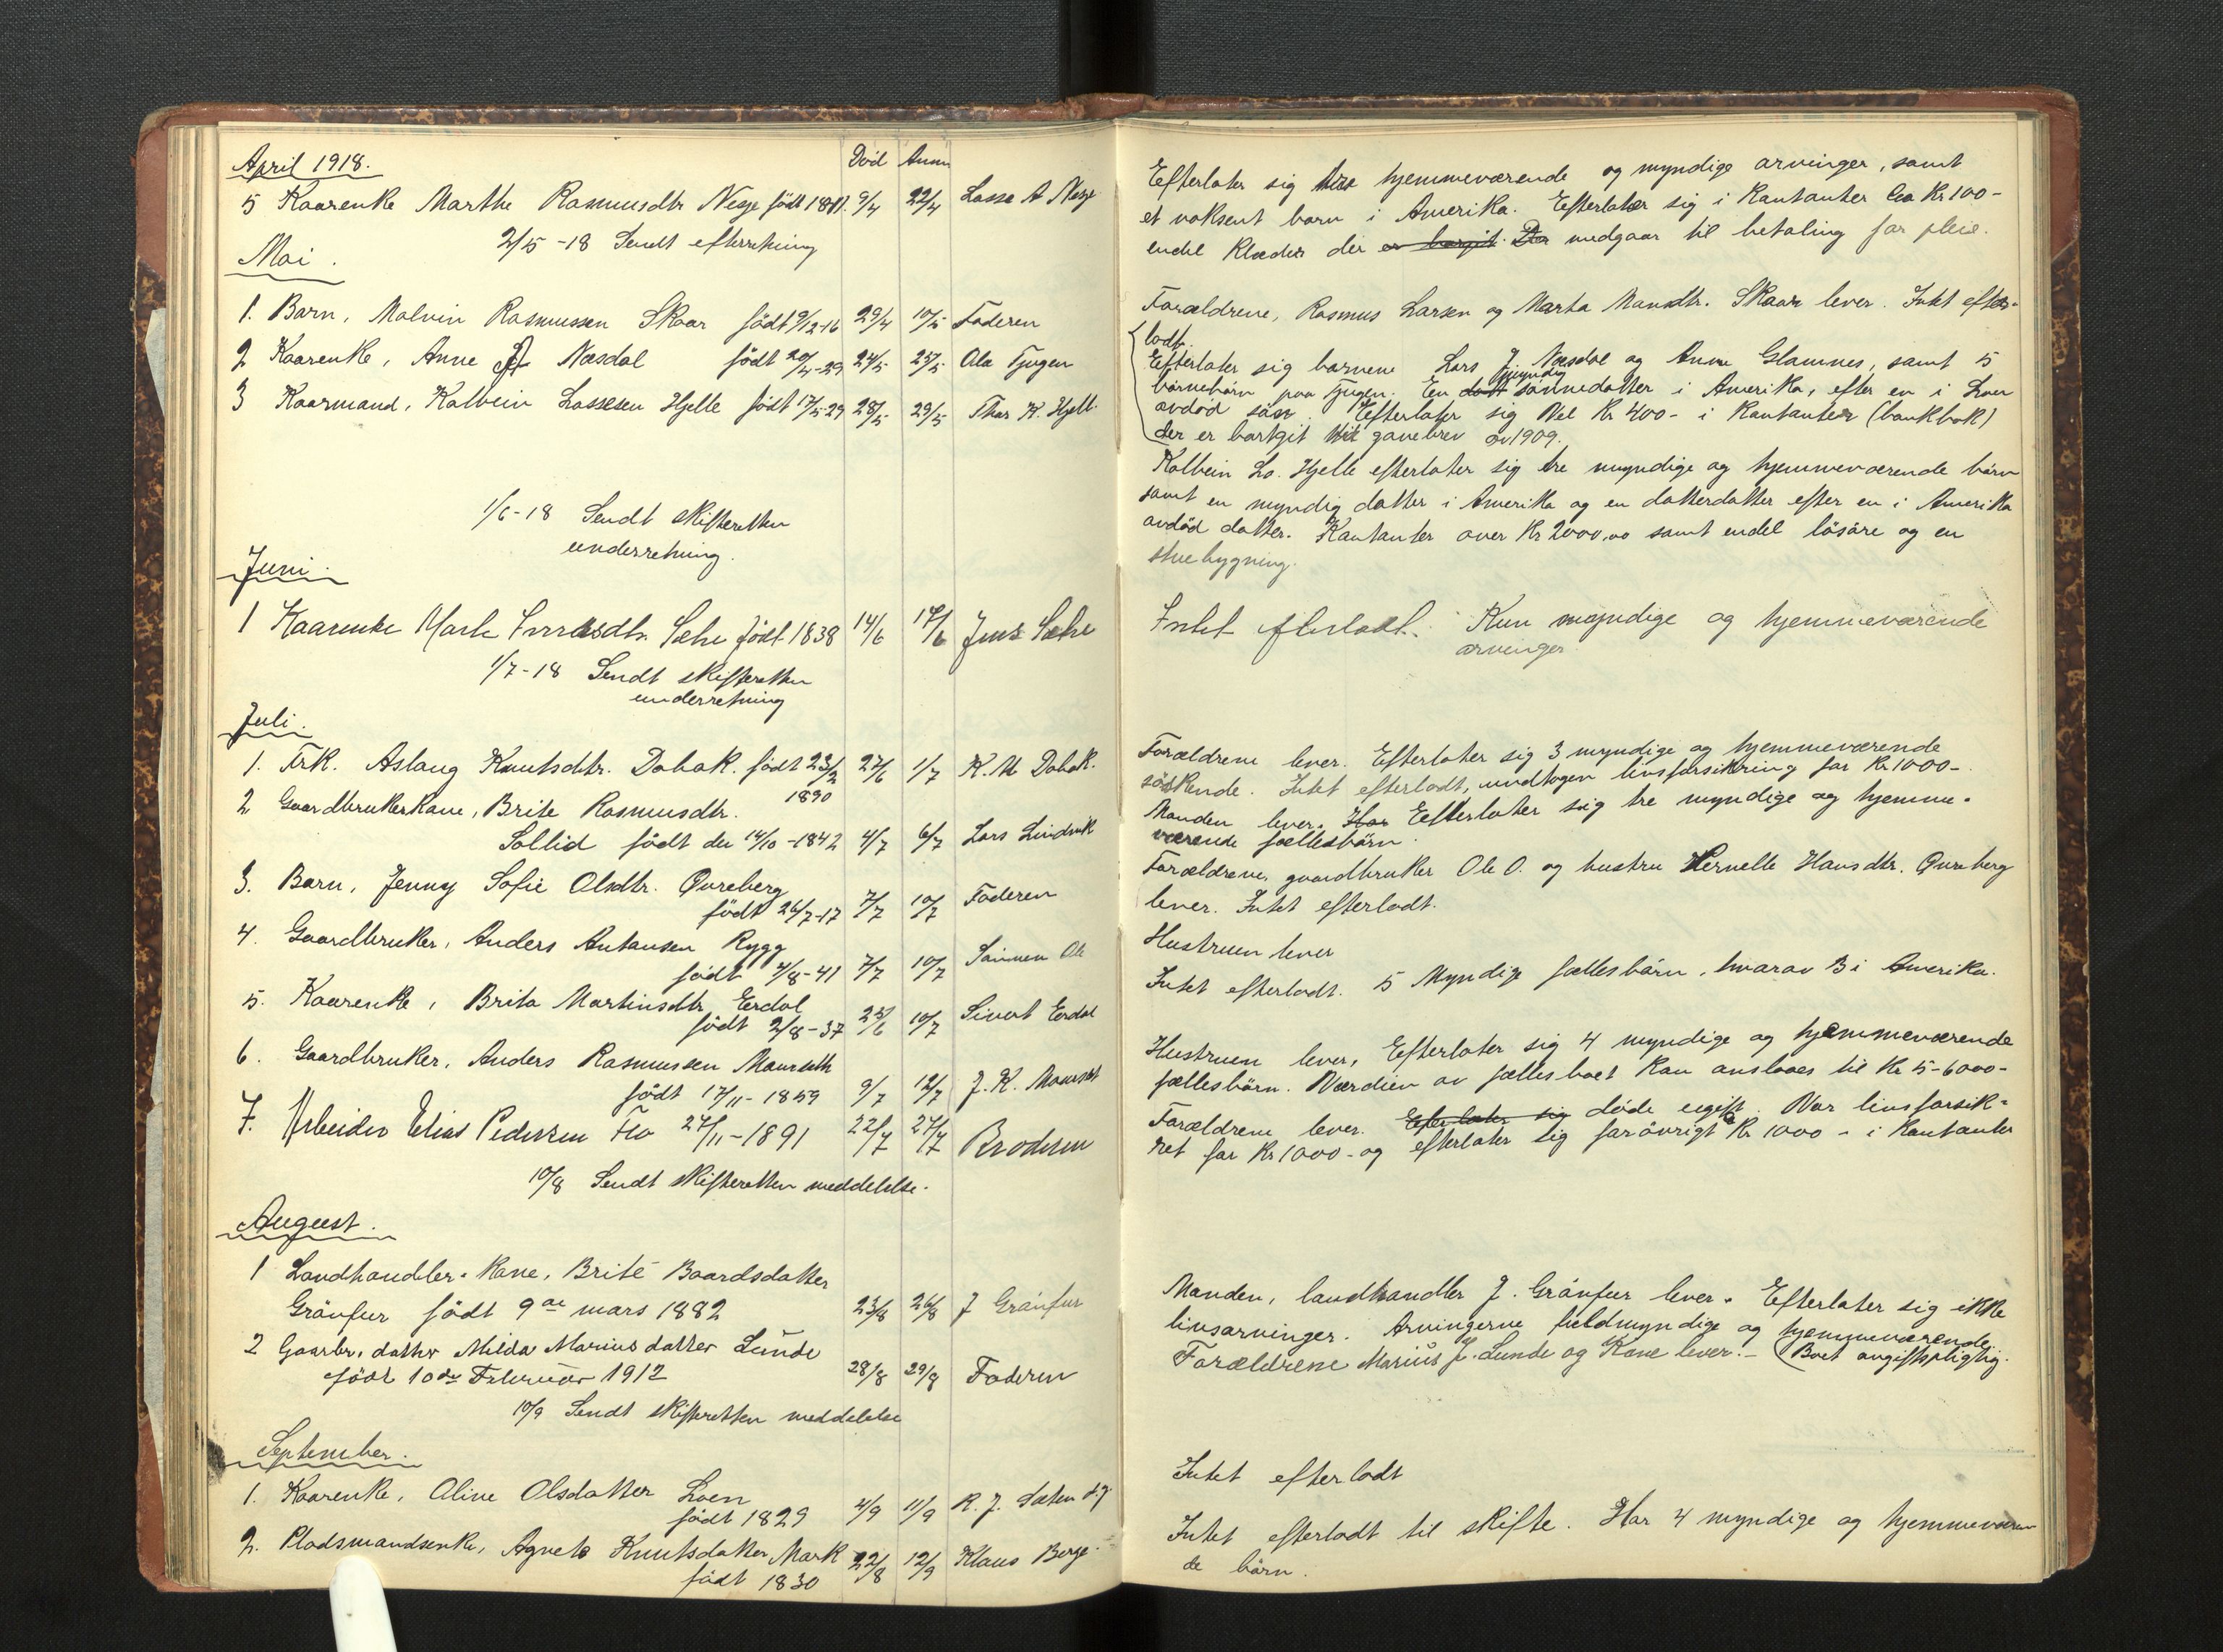 April 1918. Död Anm
5 Kaarenke Marthe Rasmusdtr Nesje födt 1841. 9/4 22/4 Lasse A Nesje
2/5 -18 Sendt efterretning
Mai.
1. Barn, Malvin Rasmussen Skaar födt 9/12-16 29/4 10/5 Faderen
2 Kaarenke, Anne Nesdal födt 20/4-29 24/5 25/5 Ola Tjugen
3 Kaarmand, Kolbein Lassesen Hjelle födt 17/5-29 28/5 29/5 Thor K. Hjelle
1/6-18 Sendt skifteretten
underretning.
Juni.
1 Kaarenke Marte Sæhe födt 1838 14/6 17/6 Jens Sæhe
1/7-18 Sendt skifteretten
underretning
Juli.
1. Frk. Aslaug Knutsdtr. Dobak. födt 23/2 27/6 1/7 K. M Dobak.
1890
2 Gaardbrukerkone, Brite Rasmusdtr.
Sollid födt den 14/10-1842 4/7 6/7 Lars Lindvik
3. Barn, Jenny Sofie Olsdtr. Qvreberg
födt 26/7-17 7/7 10/7 Faderen
4. Gaardbruker, Anders Antonsen Rygg
födt 4/8-41 7/7 10/7 Sönnen Ole
5. Kaarenke, Brita Martinsdtr Eerdal
födt 2/8-37 25/6 10/7 Sivert Eerdal
6. Gaardbruker, Anders Rasmussen Maurseth
födt 17/11-1859 9/7 12/7 J. K. Maurset
7. Arbeider Elias Pedersen Flo 27/11-1891 22/7 27/7 Broderen
10/8 Sendt skifteretten meddelelse.
August.
1 Landhandler-kone, Brite Baardsdatter
Grönfur födt 9de mars 1882 23/8 26/8 J Grönfur
2 Gaarbr. datter Milda Marius datter Lunde
födt 10de Februar 1912 28/8 29/8 Faderen
10/9 Sendt skifteretten meddelelse
September.
1. Kaarenke, Oline Olsdatter Loen
födt 1829 4/9 11/9 R. J. Sæten
2. Pladsmandsenke, Agnete Knutsdatter Mark 22/8 12/9 Klaus Berge
födt 1830
Efterlater sig tre hjemmeværende og myndige arvinger, samt
et voksent barn i Amerika. Efterlater sig i kontanter ca Kr 100-
endel klæder der er bortgit. Der medgaar til betaling for pleie.
Forældrene, Rasmus Larsen og Marta Monsdtr. Skaar lever. Intet efter-
ladt.
Efterlater sig barnene Lars J. Nesdal og Anne Glomnes, samt 5
börnebörn paa Tjugen. En datt myndig sönnedatter i Amerika, efter en i Loen
avdöd sön. Efterlater sig Vel kr 400- i kontanter (bankbok)
der er bortgit ved gavebrev av 1909.
Kolbein La. Hjelle efterlater sig tre myndige og hjemmeværende börn
samt en myndig datter i Amerika og en datterdatter efter en i Amerika
avdöd datter. Kontanter over kr 2000,00 samt endel lösöre og en
stuebygning.
Intet efterladt. Kun myndige og hjemmeværende
arvinger
Forældrene lever. Efterlater sig 3 myndige og hjemmeværende
söskende. Intet efterladt, undtagen livsforsikring for kr 1000-
Manden lever. Har Efterlater sig tre myndige og hjemme-
værende fællesbörn.
Forældrene, gaardbruker Ole O. og hustru Pernelle Hansdtr. Qvreberg
lever. Intet efterladt.
Hustruen lever
Intet efterladt. 5 Myndige fællesbörn, hvorav 3 i Amerika.
Hustruen lever, Efterlater sig 4 myndige og hjemmeværende
fællesbörn. Værdien av fællesboet kan anslaaes til kr 5-6000-
Forældrene lever. Efterlater sig döde ugift. Var livsforsik-
ret for kr 1000- og efterlater sig forövrigt ca kr 1000- i kontanter
Manden, landhandler J. Grönfur lever. Efterlater sig ikke
livsarvinger. Arvingerne fuldmyndige og hjemmeværende.
Forældrene Marius J. Lunde og Kone lever.- (Boet avgiftspligtig.
Intet efterladt
Intet efterladt til skifte. Har 4 myndige og hjemmeværen
de börn.